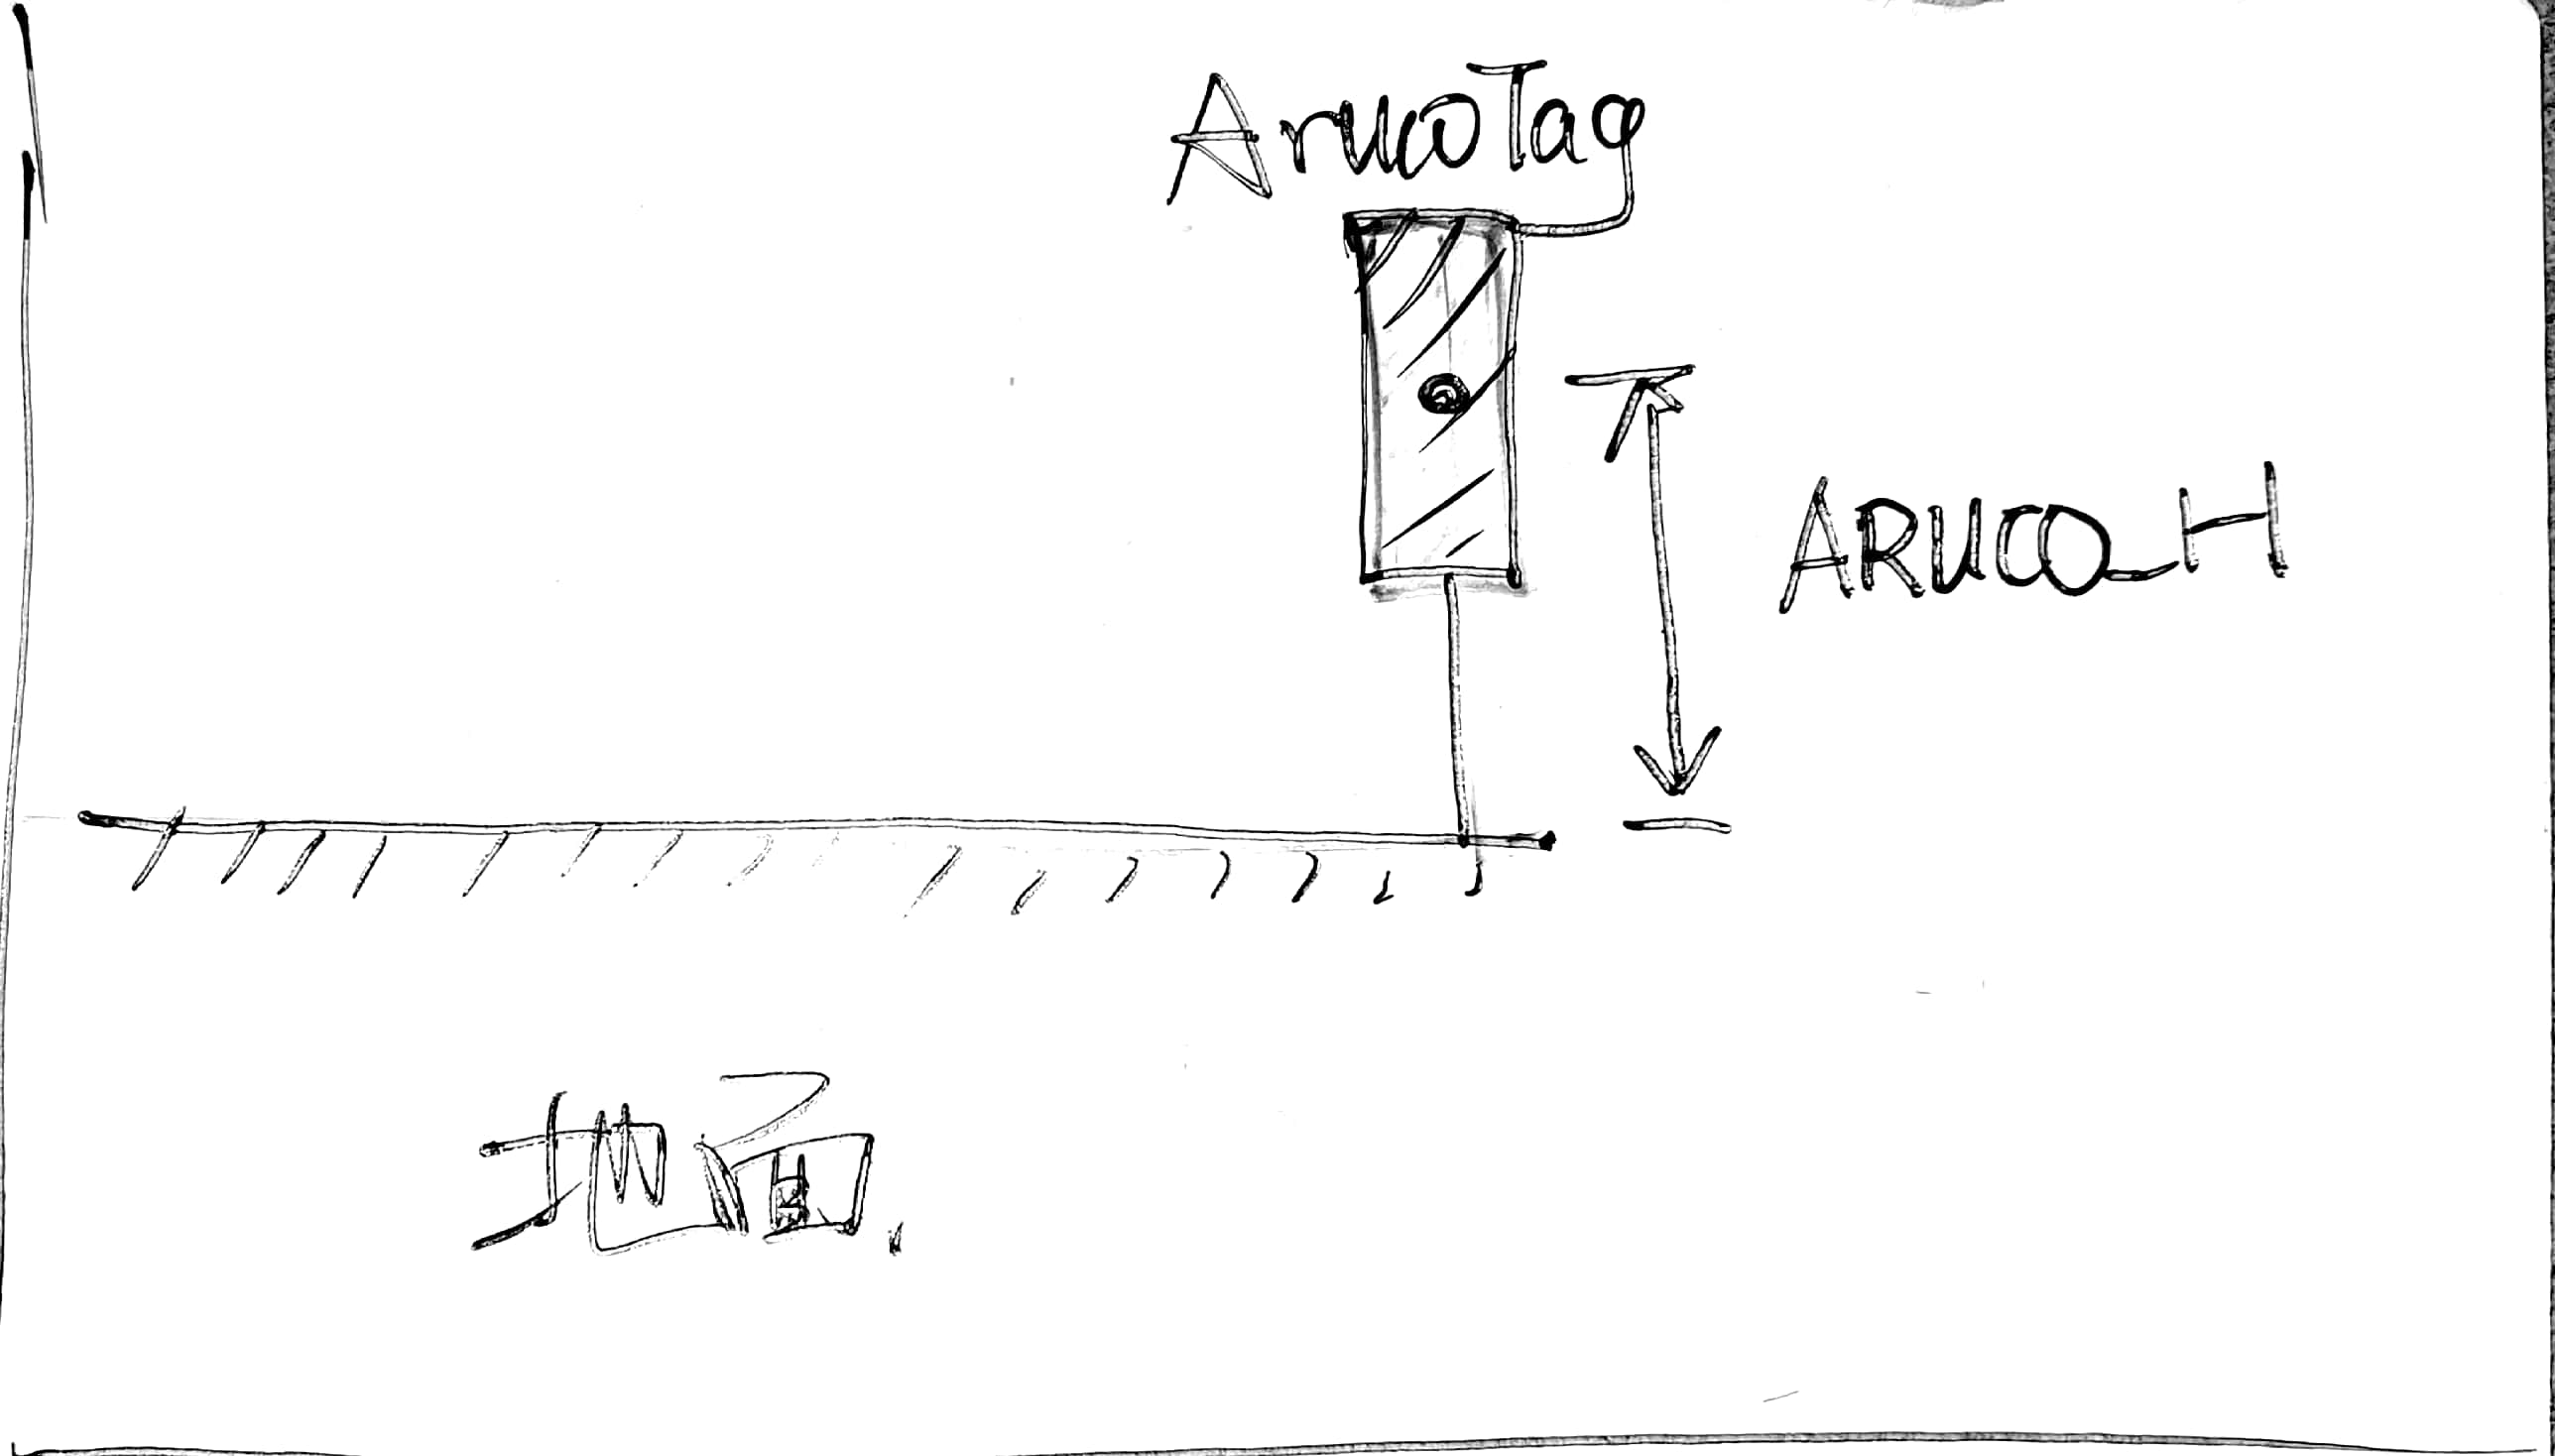 ArucoTag
ARUCO_H
地面.